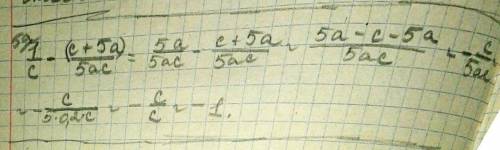 59) 1/c - (c+5a)/5ac = 5a/5ac - c+5a/5ac = 5a-c-5a/5ac = -c/5ac
= -c/5·0,2·c = -c/c = -1.